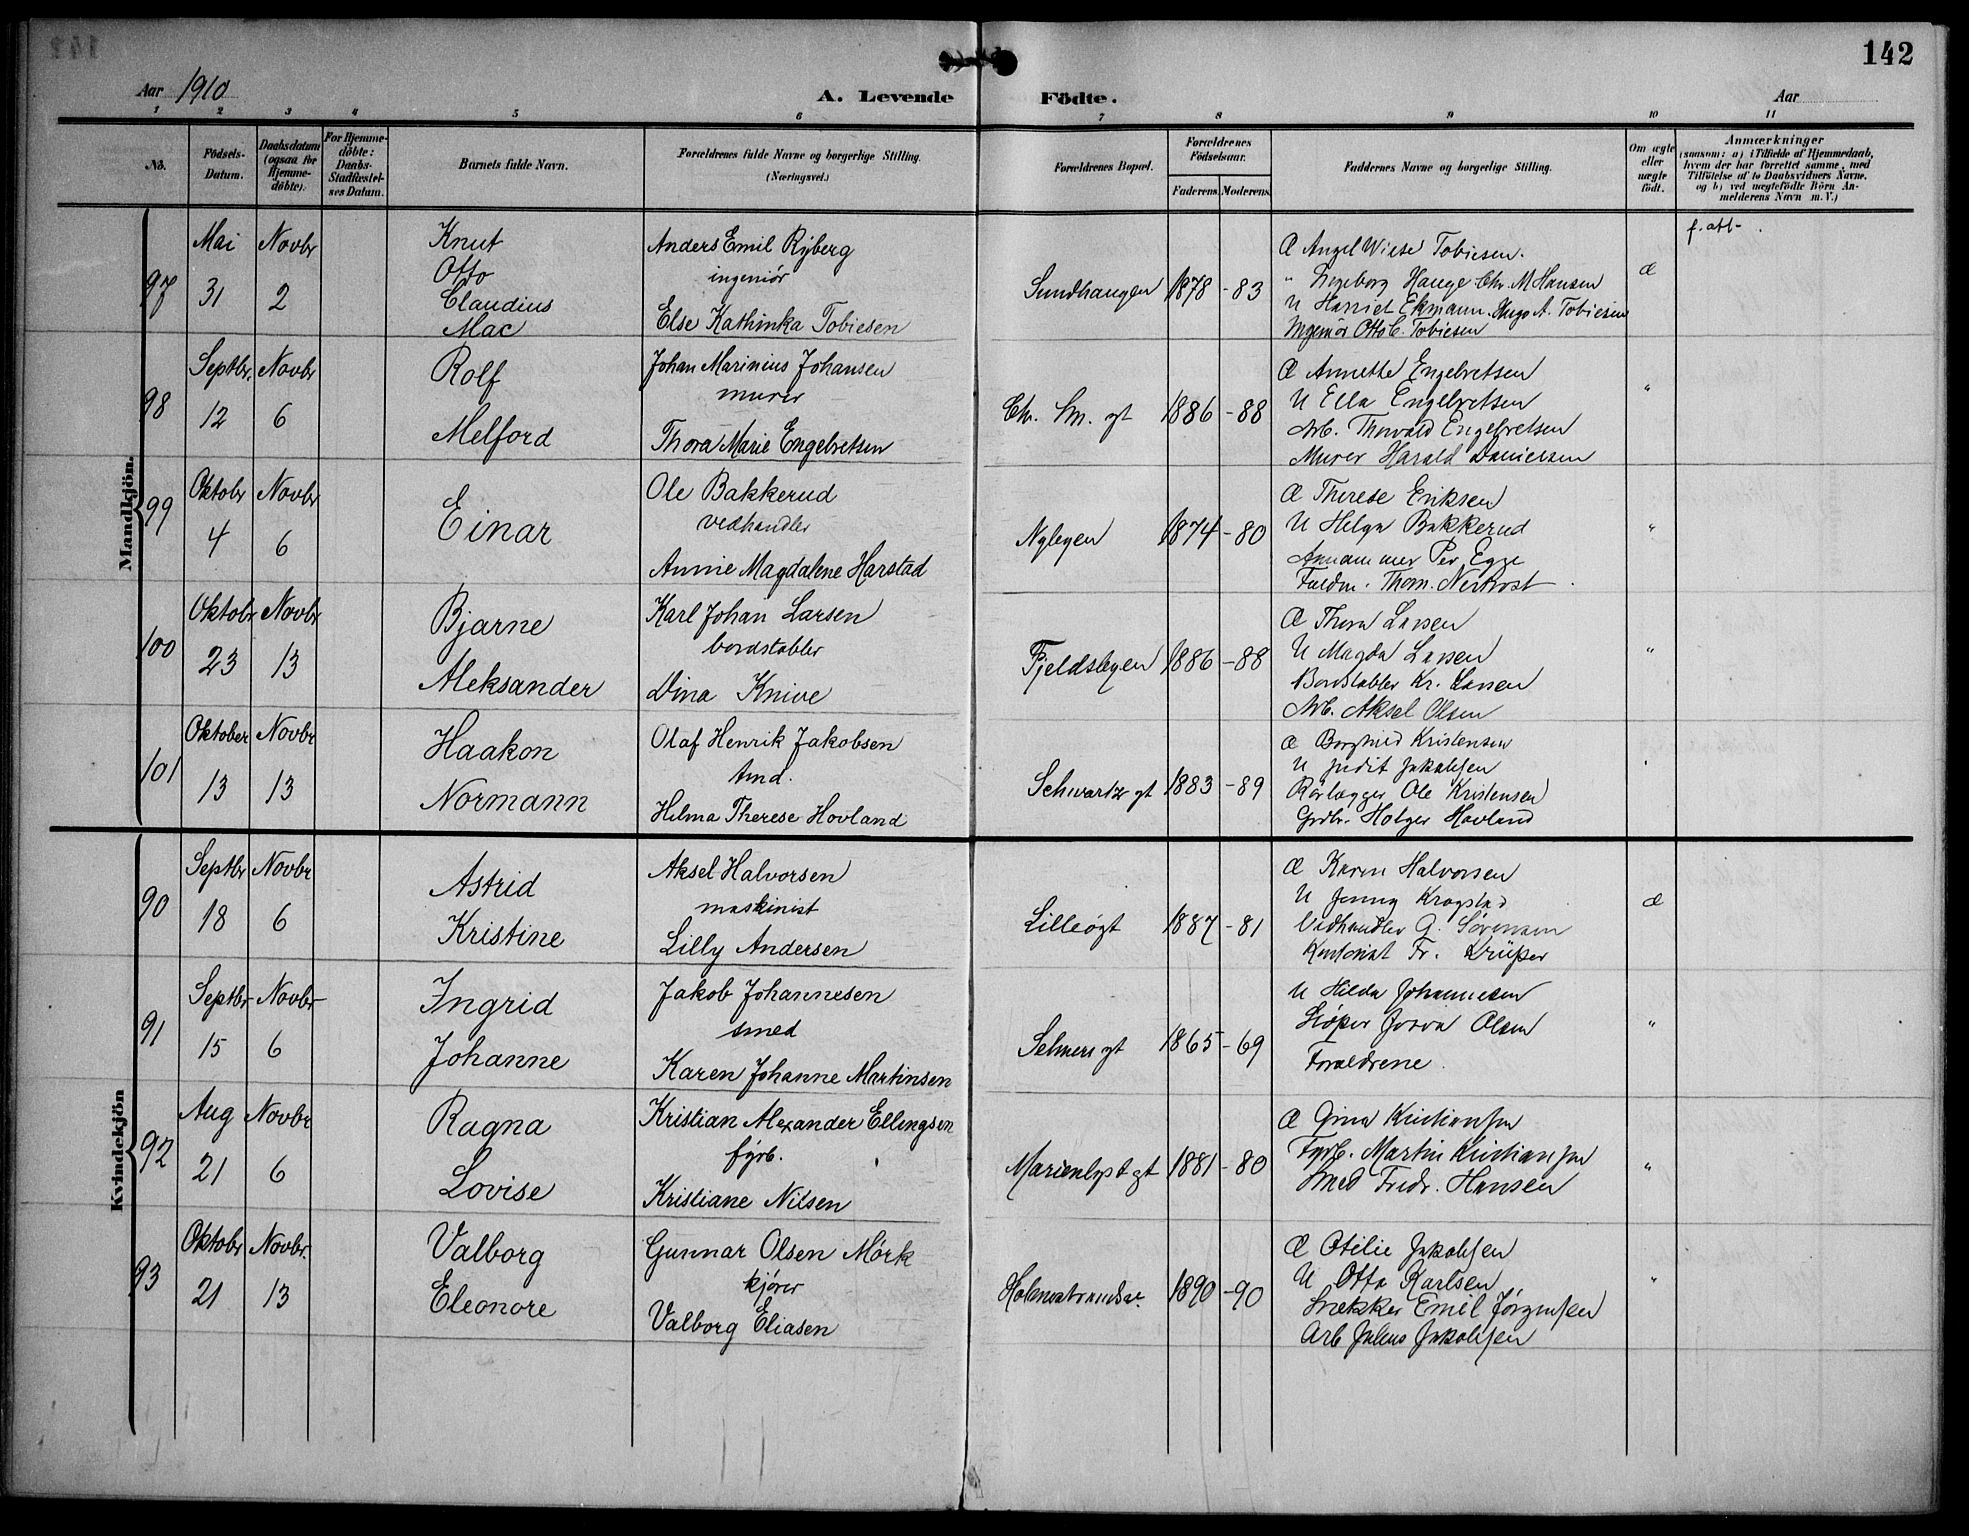 142
Aar 1910
A. Levende Födte.
Aar
1 2 3 4 5 6 7 8 9 10 11
No.
Födsels-Datum.
Daabsdatum (ogsaa for Hjemme-döbte).
For Hjemme-döbte: Daabs-Stadfæstel-ses Datum.
Barnets fulde Navn.
Forældrenes fulde Navne og borgerlige Stilling.
(Næringsvei.)
Forældrenes Bopæl.
Forældrenes Födselsaar.
Faderens. Moderens.
Faddernes Navne og borgerlige Stilling.
Om ægte eller uægte födt.
Anmærkninger
(saasom: a) i Tilfælde af Hjemmedaab,
hvem der har forrettet samme, med
Tilföielse af to Daabsvidners Navne,
og b) ved uægtefödte Börn An-
melderens Navn m. V.)
Mandkjön.
97 Mai 31 Novbr 2
Knut
Otto
Claudius
Mac
Anders Emil Ryberg
ingeniør
Else Kathinka Tobiesen
Sundhaugen 1878 - 83
Æ Angel Wiese Tobiesen.
" Ingeborg Hauge Chr. M Hansen
U Harriet Ekmann. Hugo A. Tobiesen
Ingeniör Otto C. Tobiesen
Æ
f. att.
98 Septbr. 12 Novbr 6
Rolf
Melford
Johan Marinius Johansen
murer
Thora Marie Engebretsen
Chr. Sm. gt 1886 - 88
Æ Annette Engebretsen
U Ella Engebretsen
Arb. Thorvald Engebretsen
Murer Harald Danielsen
"
99 Oktobr 4 Novbr 6
Einar
Ole Bakkerud
vedhandler
Annie Magdalene Harstad
Nyløgen 1874 - 80
Æ Therese Eriksen
U Helga Bakkerud
Per Egge
Thom.
"
100 Oktobr 23 Novbr 13
Bjarne
Aleksander
Karl Johan Larsen
bordstabler
Dina Knive
Fjeldsløgen 1886 - 88
Æ Thora Larsen
U Magda Larsen
Bordstabler Kr. Larsen
Arb. Aksel Olsen
"
101 Oktober 13 Novbr 13
Haakon
Normann
Olaf Henrik Jakobsen
smd.
Helma Therese Hovland
Schwartz gt 1883 - 89
Æ Borghild Kristensen
U Judit Jakobsen
Rørlægger Ole Kristensen
Holger Hovland
Kvindekjön
90 Septbr 18 Novbr 6
Astrid
Kristine
Aksel Halvorsen
maskinist
Lilly Andersen
Lilleøgt 1887 - 81
Æ Karen Halvorsen
U Jenny Krogstad
Vedhandler G. Sörensen
Kontorist Fr.
Æ
91 Septbr 15 Novbr 6
Ingrid
Johanne
Jakob Johannesen
smed
Karen Johanne Martinsen
Selmers gt 1865 - 69
U Hilda Johannesen
Olsen
Forældrene.
"
92 Aug 21 Novbr 6
Ragna
Lovise
Kristian Alexander Ellingsen
fyrb.
Kristiane Nilsen
Marienlyst gt 1881 - 80
Æ Gina Kristiansen
Fyrb. Martin Kristiansen
Smed Fredr. Hansen
"
93 Oktobr 21 Novbr. 13
Valborg
Eleonore
Gunnar Olsen Mørk
kjører
Valborg Eliasen
Holmestrandsv. 1890 - 90
Æ Otilie Jakobsen
U Otta Karlsen
Snekker Emil Jørgensen
Arb Julius Jakobsen
"